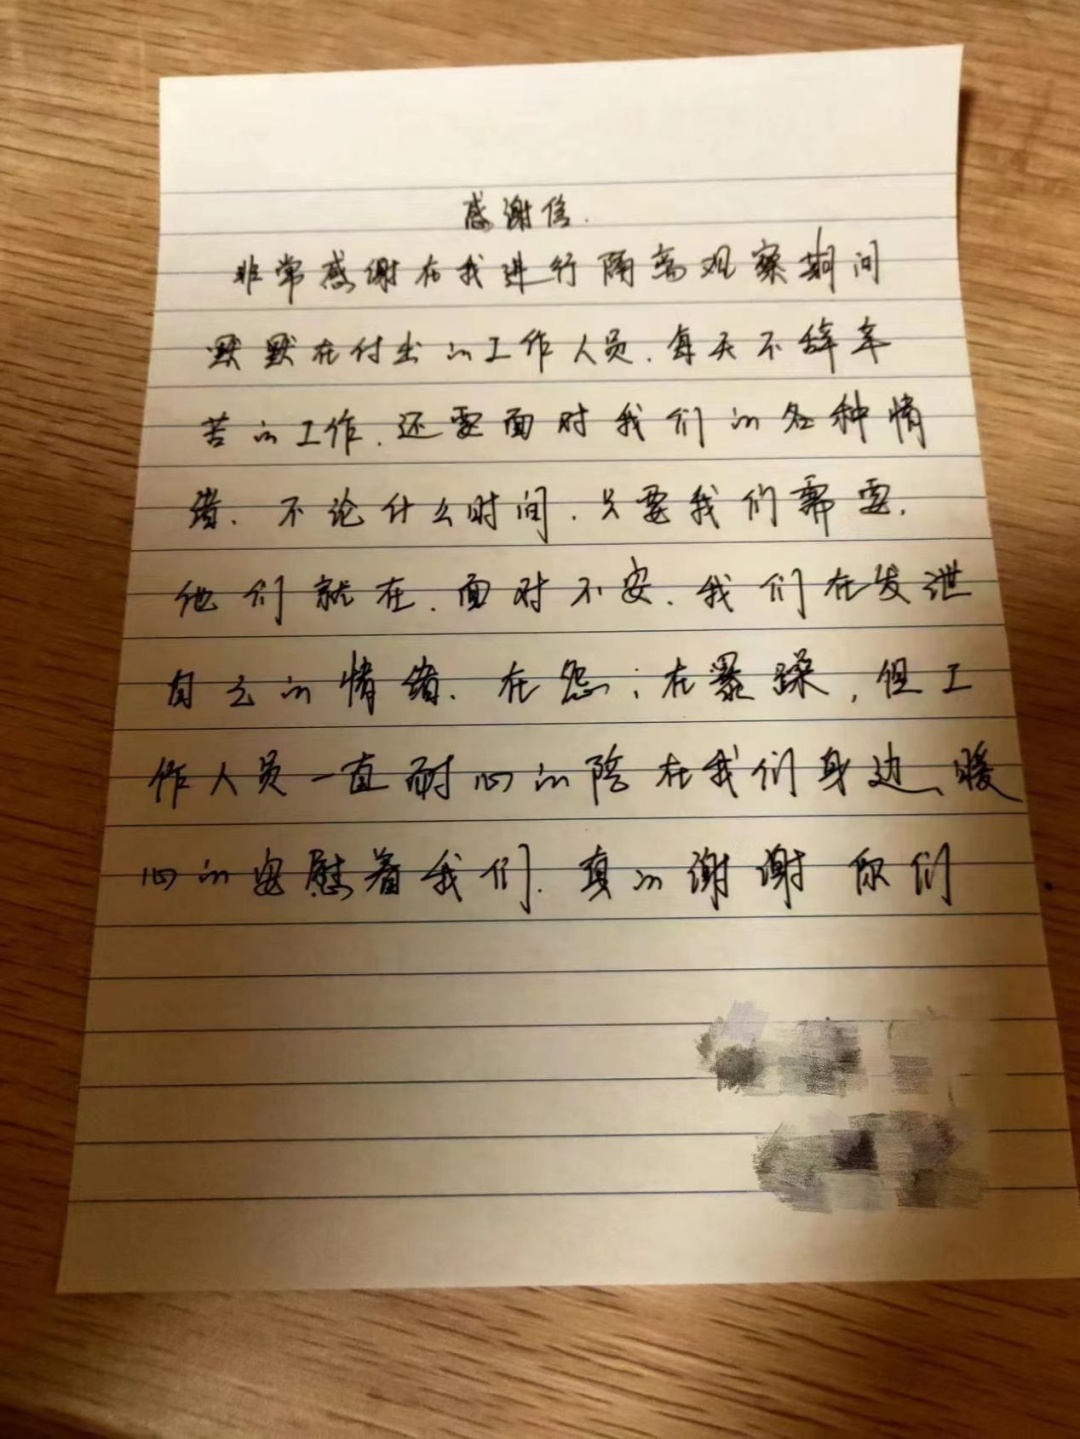 感谢信.
非常感谢在我进行隔离观察期间
默默在付出的工作人员.每天不辞辛
苦的工作.还要面对我们的各种情
绪.不论什么时间.只要我们需要.
他们就在.面对不安.我们在发泄
自己的情绪.在怨;在暴躁,但工
作人员一直耐心的陪在我们身边、暖
心的安慰着我们.真的谢谢你们